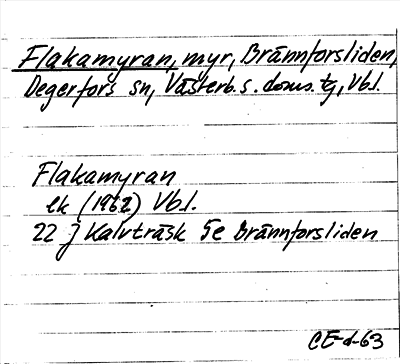 Flakamyran, myr, Brännforsliden,
Degerfors sn, Västerb. s. doms. tg, Vb.l.
Flakamyran
ek (1962) Vb.l.
22 J Kalvträsk 5e Brännforsliden
CE-d-63